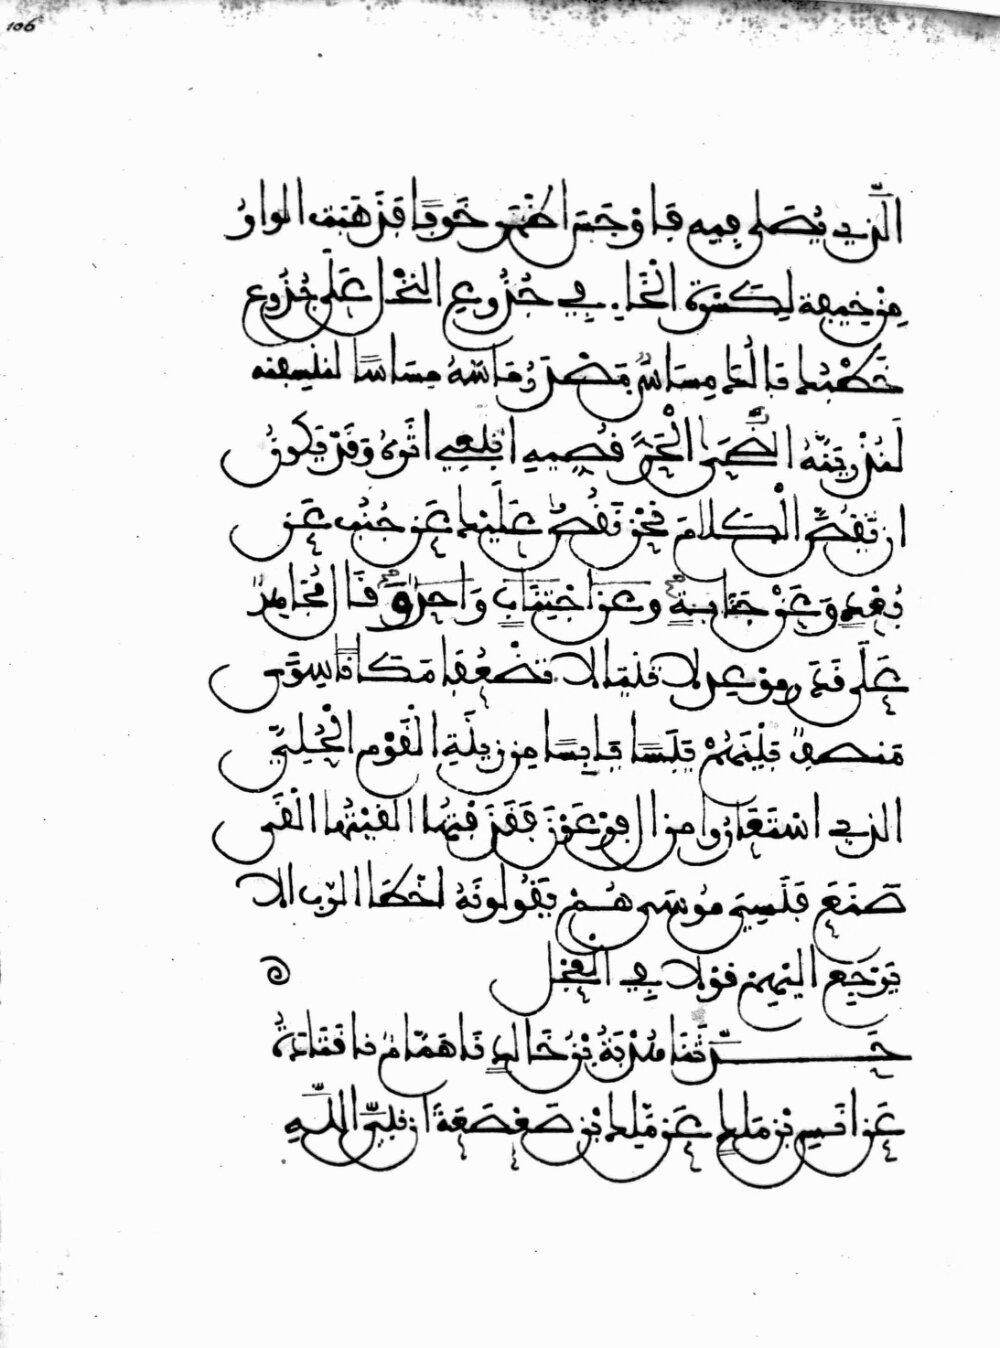 106
الَّذِي يُصَلَّى فِيهِ فَأَوْجَسَ أَضْمَرَ خَوْفًا فَذَهَبَتِ الْوَاوُ
مِنْ خِيفَةً لِكَسْرَةِ الْخَاءِ فِي جُذُوعِ النَّخْلِ عَلَى جُذُوعِ
خَطْبُكَ بَالُكَ مِسَاسَ مَصْدَرُ مَاسَّهُ مِسَاسًا لَنَنْسِفَنَّهُ
لَنُذْرِيَنَّهُ الضَّحَى الْحَرُّ قُصِّيهِ اتَّبِعِي أَثَرَهُ وَقَدْ يَكُونُ
أَنْ تَقُصَّ الْكَلَامَ نَحْنُ نَقُصُّ عَلَيْكَ عَنْ جُنُبٍ عَنْ
بُعْدٍ وَعَنْ جَنَابَةٍ وَعَنِ اجْتِنَابٍ وَاحِدٌ وَقَالَ مُجَاهِدٌ
عَلَى قَدَرٍ مَوْعِدٍ لَا تَنِيَا لَا تَضْعُفَا مَكَانًا سِوًى
مَنْصَفٌ بَيْنَهُمْ يَبَسًا يَابِسًا مِنْ زِينَةِ الْقَوْمِ الْحُلِيِّ
الَّذِي اسْتَعَارُوا مِنْ آلِ فِرْعَوْنَ فَقَذَفْتُهَا أَلْقَيْتُهَا أَلْقَى
صَنَعَ فَنَسِيَ مُوسَى هُمْ يَقُولُونَهُ أَخْطَأَ الرَّبَّ أَلَّا
يَرْجِعُ إِلَيْهِمْ قَوْلًا فِي الْعِجْلِ
حَدَّثَنَا هُدْبَةُ بْنُ خَالِدٍ نَا هَمَّامٌ نَا قَتَادَةُ
عَنْ أَنَسِ بْنِ مَلِكٍ عَنْ مَلِكِ بْنِ صَعْصَعَةَ أَنَّ نَبِيَّ اللَّهِ